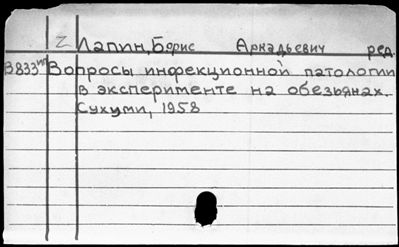 Z Лапин, Борис Аркадьевич ред.
В833м Вопросы инфекционной патологии
в эксперименте на обезьянах.
Сухуми, 1958